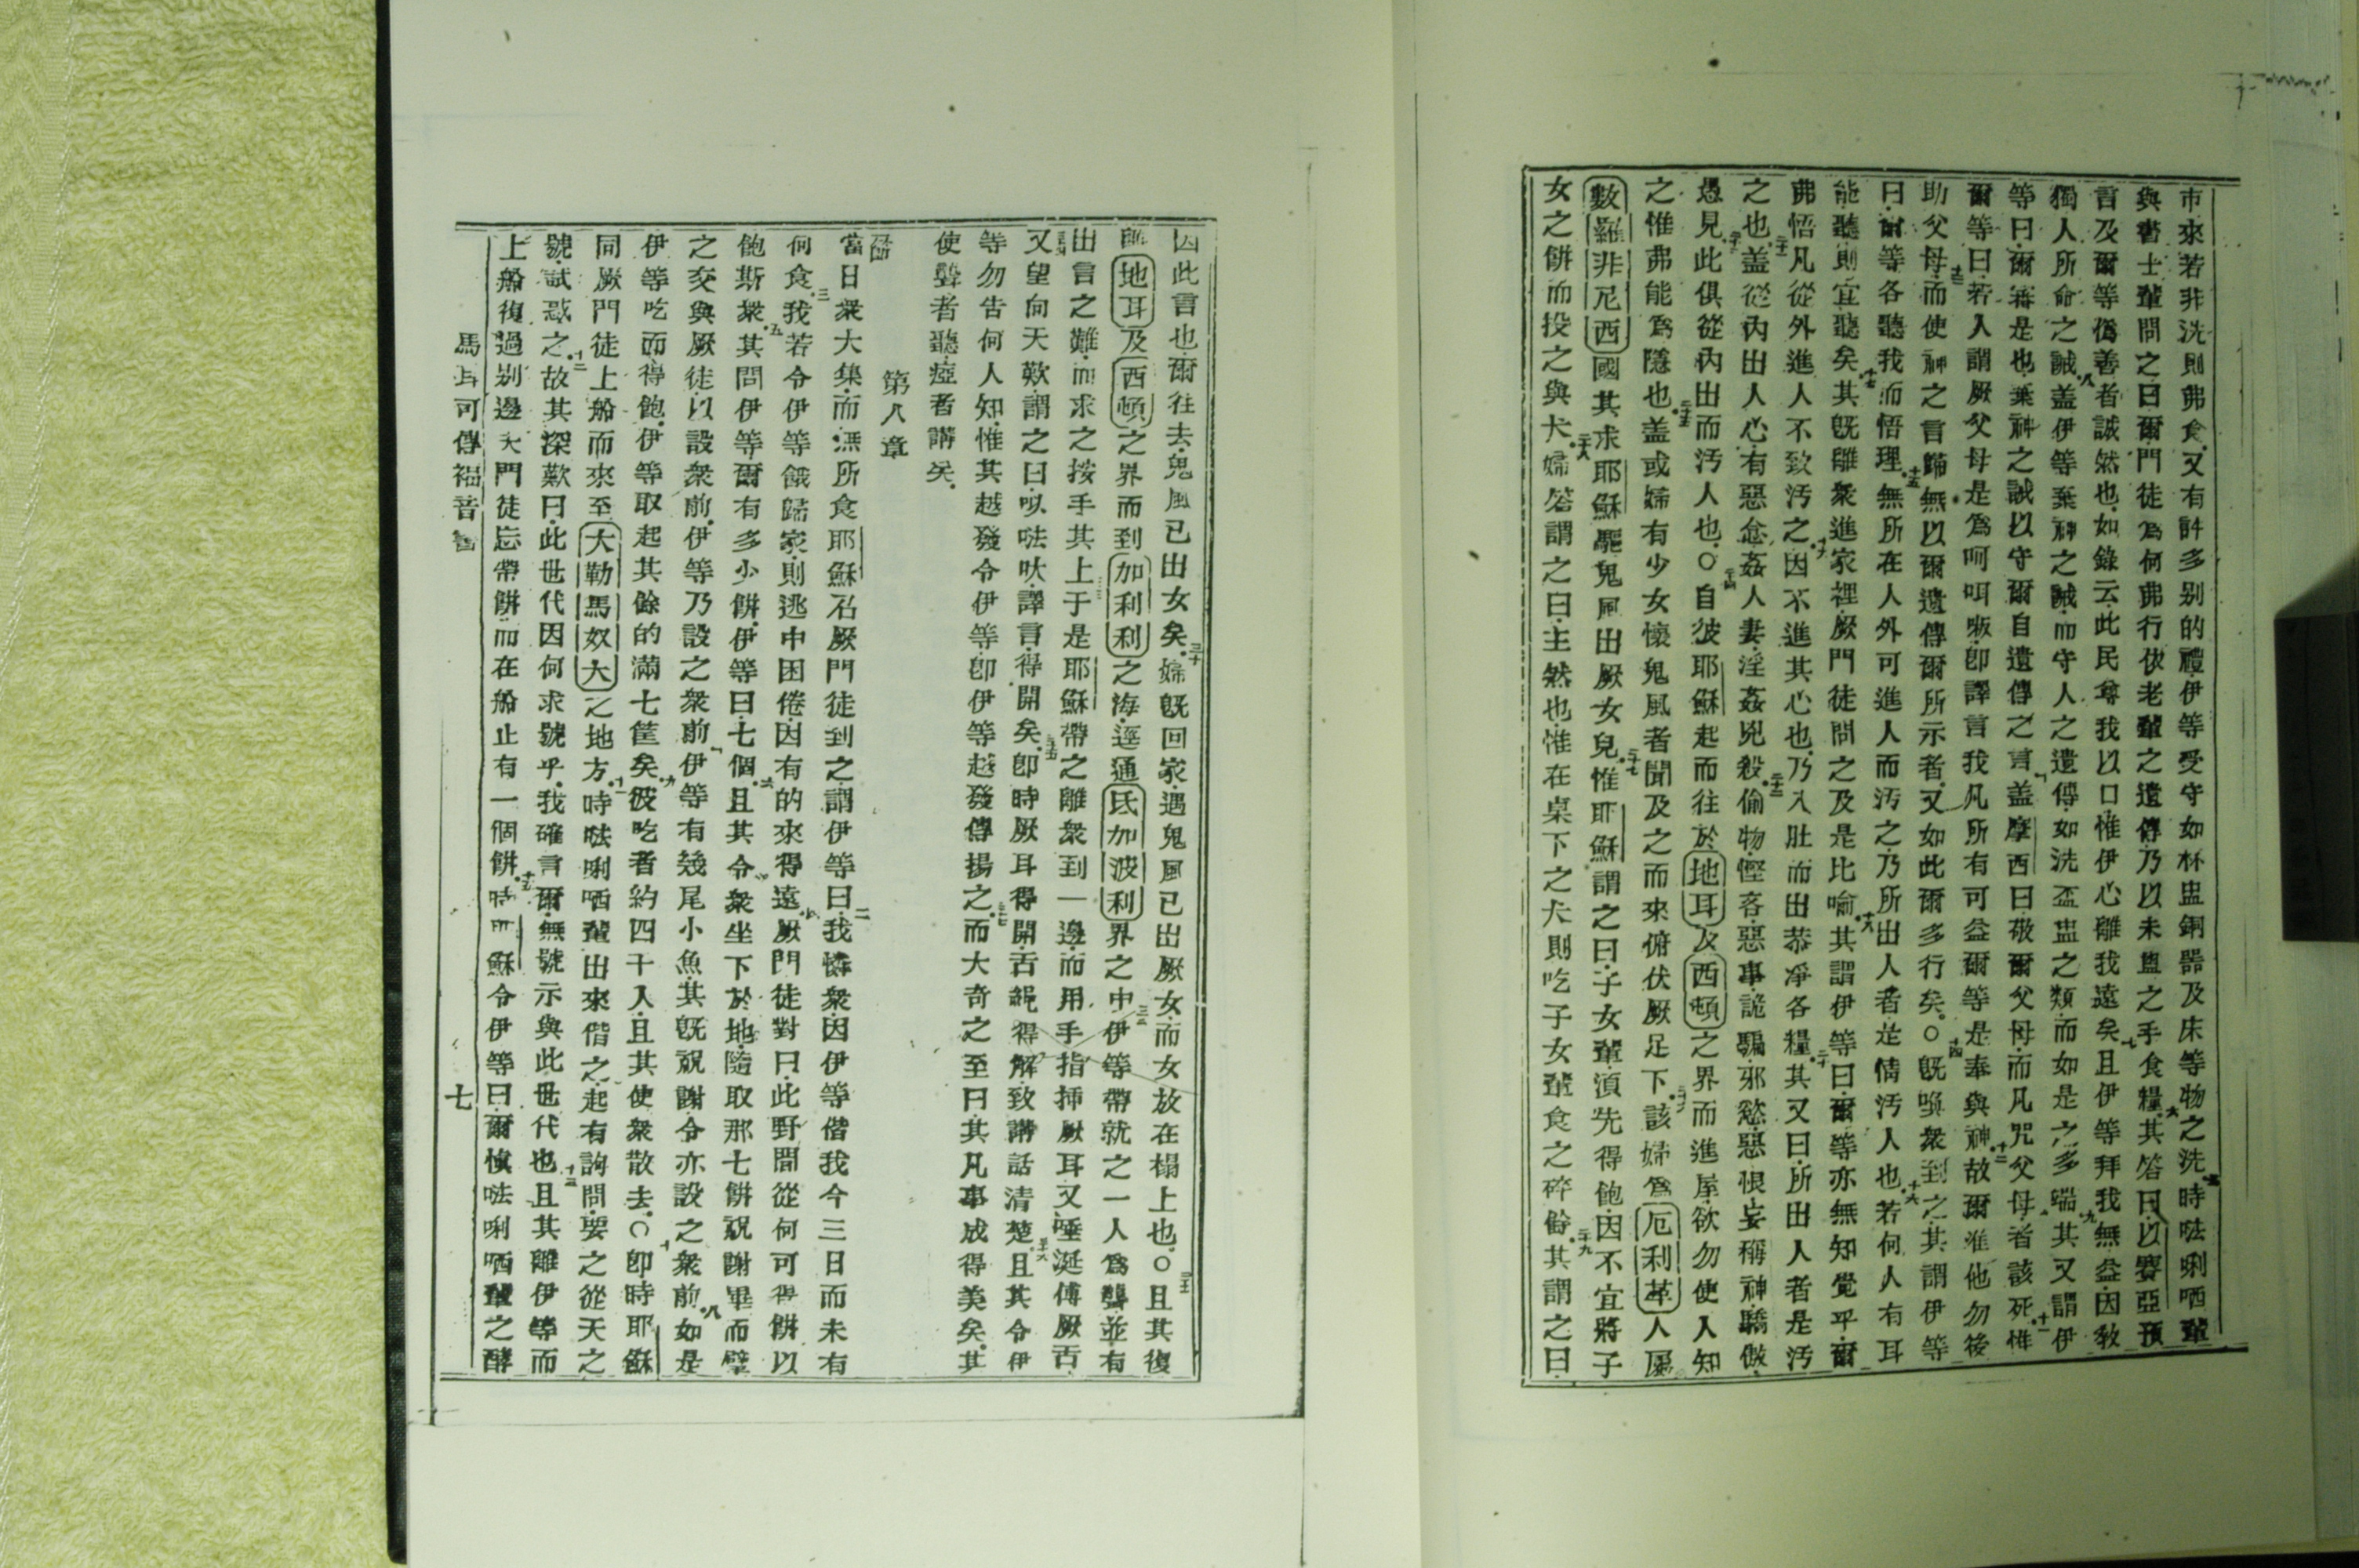 市來若非洗則弗食又有許多別的禮伊等受守如杯盅銅器及床等物之洗五時㕸唎哂輩
與書士輩問之曰爾門徒為何弗行依老輩之遺傳乃以未盥之手食糧六其答曰以賽亞預
言及爾等僞善者誠然也如錄云此民尊我以口惟伊心離我遠矣七且伊等拜我無益因教
獨人所命之誡八蓋伊等棄神之誡而守人之遺傳如洗盃盅之類而如是之多端九其又謂伊
等曰爾審是也棄神之誡以守爾自遺傳之言十蓋摩西曰敬爾父母而凡咒父母者該死十一惟
爾等曰若人謂厥父母是為呵咡𠵽卽譯言我凡所有可益爾等是奉與神十二故爾准他勿後
助父母十三而使神之言歸無以爾遺傳爾所示者又如此爾多行矣○十四旣喚衆到之其謂伊等
曰爾等各聽我而悟理十五無所在人外可進人而汚之乃所出人者是情汚人也十六若何人有耳
能聽則宜聽矣十七其旣離衆進家裡厥門徒問之及是比喻十八其謂伊等曰爾等亦無知覺乎爾
弗悟凡從外進人不致汚之十九因不進其心也乃入肚而出恭凈各糧二十其又曰所出人者是汚
之也二十一蓋從內出人心有惡念姦人妻淫姦兇殺二十二偷物慳吝惡事詭騙邪慾惡恨妄稱神驕傲
愚二十三見此俱從內出而汚人也○二十四自彼耶穌起而往於地耳及西頓之界而進屋欲勿使人知
之惟弗能為隱也二十五蓋或婦有少女懷鬼風者聞及之而來俯伏厥足下二十六該婦為厄利革人屬
數羅非尼西國其求耶穌驅鬼風出厥女兒二十七惟耶穌謂之曰子女輩須先得飽因不宜將子
女之餅而投之與犬二十八婦答謂之曰主然也惟在桌下之犬則吃子女輩食之碎俗二十九其謂之曰
因此言也爾往去鬼風已出女矣三十婦旣回家遇鬼風已出厥女而女放在榻上也○三十一且其復
離地耳及西頓之界而到加利利之海逕通氐加波利界之中三十二伊等帶就之一人為聾並有
出言之難而求之按手其上三十三于是耶穌帶之離衆到一邊而用手指揷厥耳又唾涎傅厥舌
三十四又望向天歎謂之曰㕽㕸㕭譯言得開矣三十五卽時厥耳得開舌綑得解致講話清楚三十六且其令伊
等勿告何人知惟其越發令伊等卽伊等越發傳揚之三十七而大奇之至曰其凡事成得美矣其
使聾者聽瘂者講矣
第八章
當日衆大集而無所食耶穌召厥門徒到之謂伊等曰二我憐衆因伊等偕我今三日而未有
何食三我若令伊等餓歸家則逃中困倦因有的來得遠四厥門徒對曰此野間從何可得餅以
飽斯衆五其問伊等爾有多少餅伊等曰七個六且其令衆坐下於地隨取那七餅祝謝畢而擘
之交與厥徒以設衆前伊等乃設之衆前七伊等有幾尾小魚其旣祝謝令亦設之衆前八如是
伊等吃而得飽伊等取起其餘的滿七筐矣九彼吃者約四千人且其使衆散去○十卽時耶穌
同厥門徒上船而來至大勒馬奴大之地方十一時㕸唎哂輩出來偕之起有詢問要之從天之
號試惑之十二故其深歎曰此世代因何求號乎我確言爾無號示與此世代也十三且其離伊等而
上船復過別邊十四門徒忘帶餅而在船止有一個餅十五時耶穌令伊等曰爾愼㕸唎哂輩之酵
馬耳可傳福音書 七